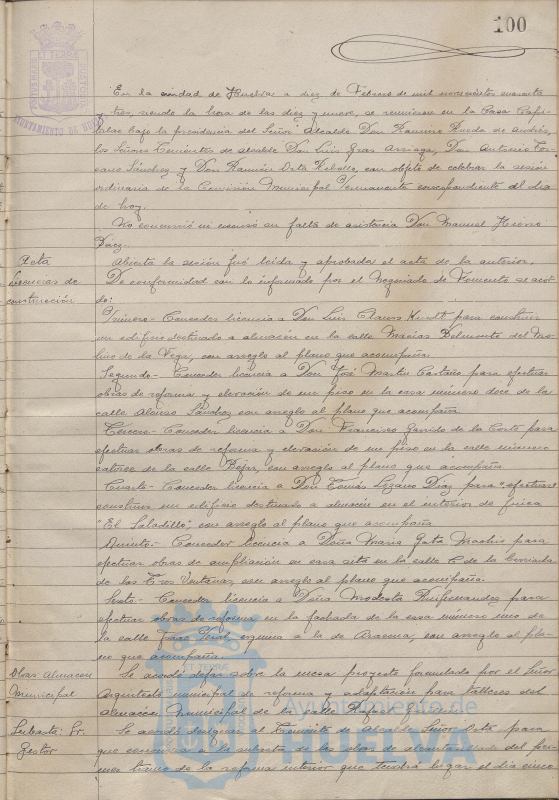 100
En la ciudad de Huelva a diez de Febrero de mil novecientos cuarenta
tres, siendo la hora de las diez y nueve, se reunieron en la Casa Capi-
tular bajo la presidencia del Señor Alcalde Don Ramiro Rueda de Andrés,
los Señores Tenientes de alcalde Don Luis Gras Arriaga, Don Antonio
Sánchez y Don Ramón Orta Rebollo, con objeto de celebrar la sesión
ordinaria de la Comisión Municipal Permanente correspondiente al día
de hoy.
No concurrió ni excusó su falta de asistencia Don Manuel
Acta
Abierta la sesión fué leida y aprobada el acta de la anterior.
Licencias de
construcción
De conformidad con lo informado por el Negociado de Fomento se acor-
dó:
Primero- Conceder licencia a Don Luis Clauss para construir
un edificio destinado a almacén en la calle Macias Belmonte del Mo-
lino de la Vega, con arreglo al plano que acompaña.
Segundo- Conceder licencia a Don José Martin Castaño para efectuar
obras de reforma y elevación de un piso en la casa número doce de la
calle Alonso Sánchez con arreglo al plano que acompaña
Tercero- Conceder licencia a Don Francisco Garrido de la Corte para
efectuar obras de reforma y elevación de un piso en la calle número
catorce de la calle Bejar, con arreglo al plano que acompaña
Cuarto- Conceder licencia a Don Tomás Lozano Díaz para "efectuar"
construir un edificio destinado a almacén en el interior de finca
"El Saladillo", con arreglo al plano que acompaña
Quinto.- Conceder licencia a Doña María Gata Macho para
efectuar obras de ampliación en casa sita en la calle C de la barriada
de las Tres Ventanas, con arreglo al plano que acompaña.
Sexto- Conceder licencia a Doña Modesta Ruifernandez para
efectuar obras de reforma en la fachada de la casa número uno de
la calle esquina a la de Aracena, con arreglo al pla-
no que acompaña.
Obras Almacen
Municipal
Se acordó dejar sobre la mesa proyecto formulado por el Señor
Arquitecto municipal de reforma y adaptación para talleres del
almacén Municipal de la calle Rafael Guillén.
Subasta: Sr.
Gestor
Se acordó designar al Teniente de Alcalde Señor Orta para
que concurra a la subasta de las obras de alcantarillado del pri-
mer tramo de la reforma interior que tendrá lugar el día cinco
Ayuntamiento de
HUELVA